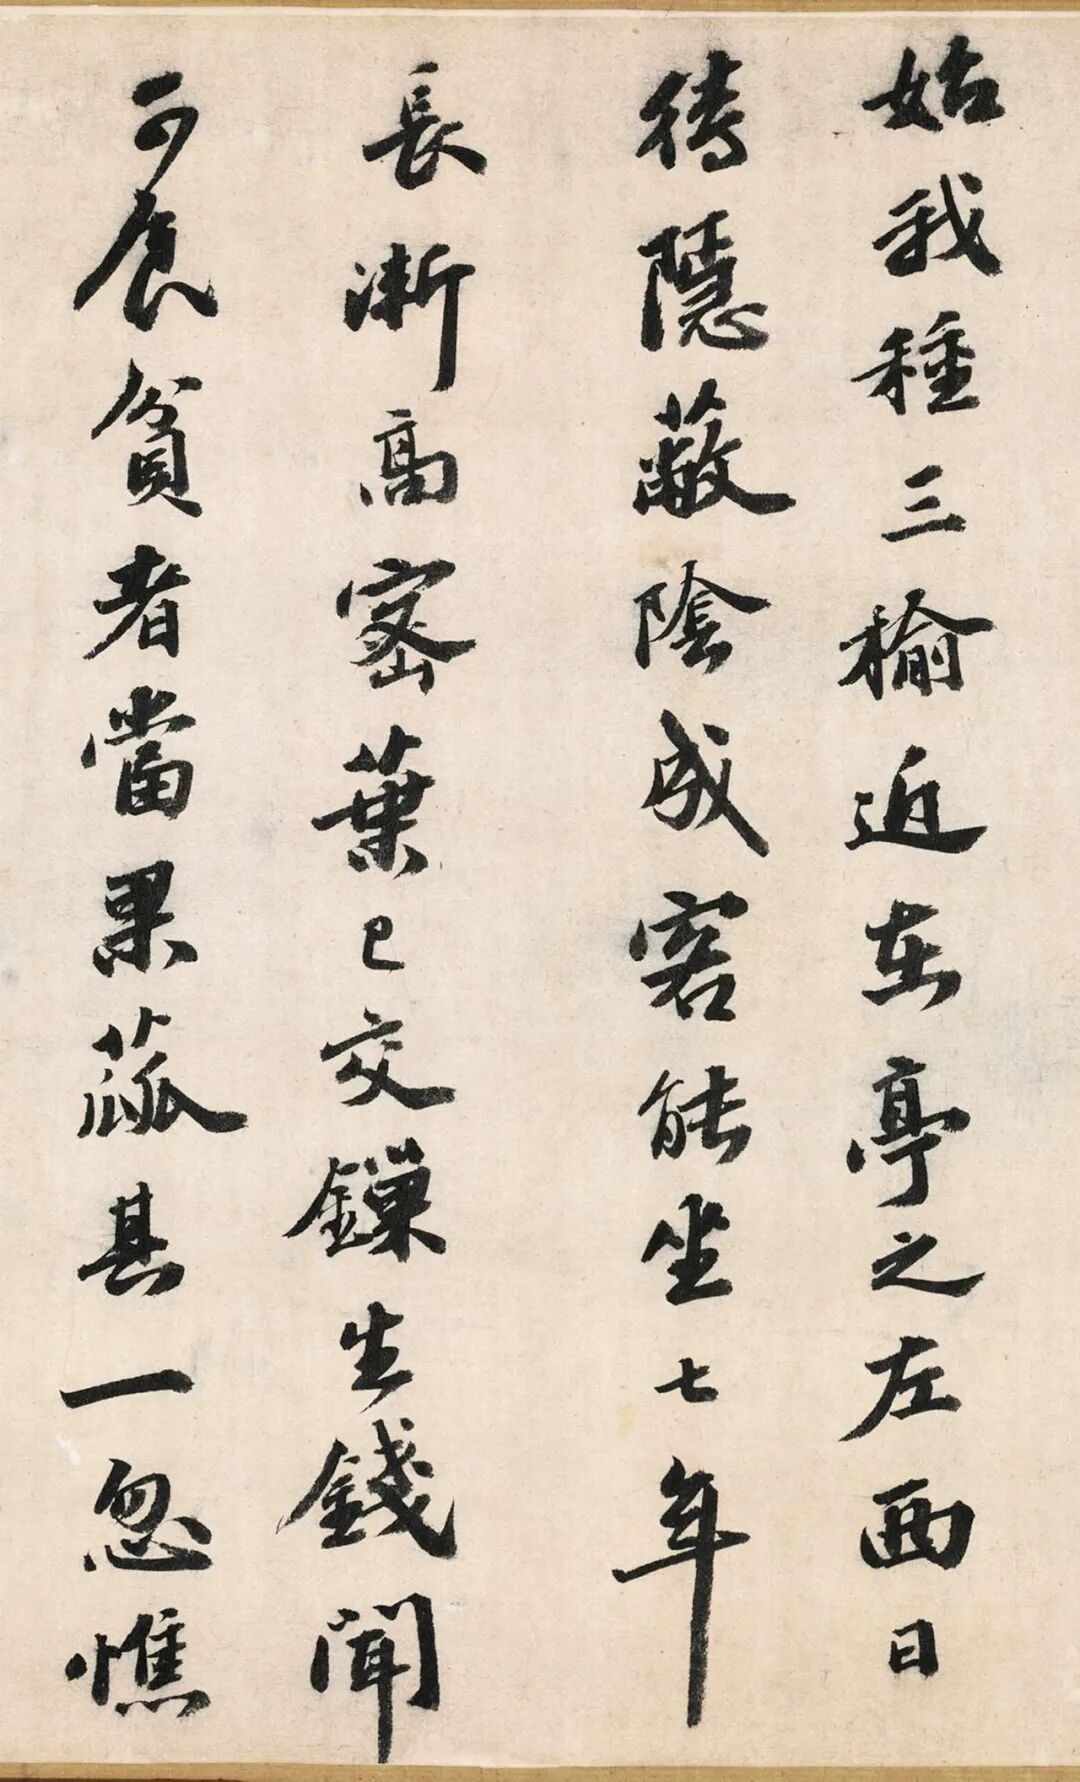 始我種三榆近在亭之左西日
待隱蔽陰成客能坐七年
長漸高密葉已交鏁生錢聞
可食貧者當果蓏其一忽憔